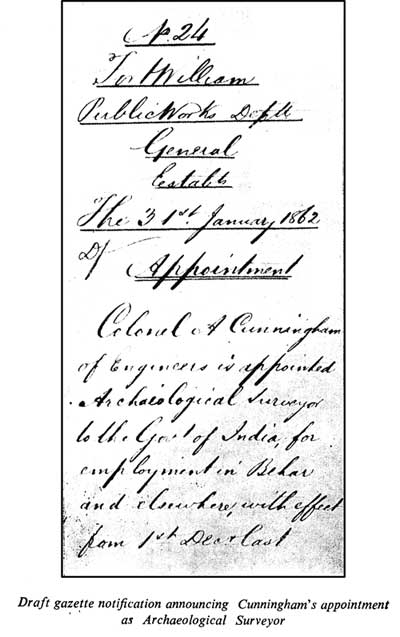 No. 24
Fort William
Public Works Deptt
General
Establt
The 31st. January 1862
D/
Appointment
Colonel A Cunningham
of Engineers is appointed
Archaeological Surveyor
to the Govt of India, for
employment in Behar
and elsewhere, with effect
from 1st Decr last
Draft gazette notification announcing Cunningham's appointment
as Archaeological Surveyor